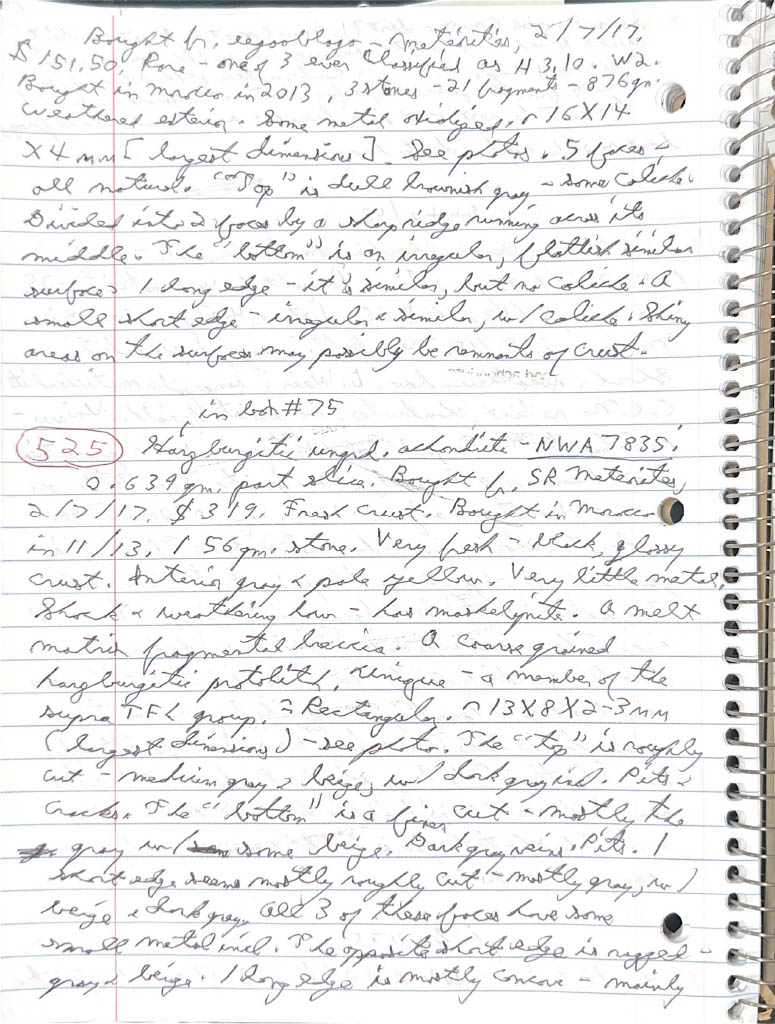 Bought fr. segooblogo - meteorites, 2/7/17.
$151.50. Rare - one of 3 ever classified as H 3.10. W2.
Bought in morocco in 2013, 3 stones - 21 fragments - 876 gm.
Weathered exterior. Some metal oxidized. ~ 16 X 14
X 4 mm [largest dimensions]. See photos. 5 faces -
all natural. "Top" is dull brownish gray - some caliche.
Divided into 2 faces by a sharp ridge running across its
middle. The "bottom" is an irregular, flattish similar
surface. 1 long edge - it's similar, but no caliche. A
small short edge - irregular & similar, w/ caliche. Shiny
areas on the surfaces may possibly be remnants of crust.
in box #75
525 Harzburgitic ungrd. achondrite - NWA 7835.
0.639 gm. part slice. Bought fr. SR Meteorites,
2/7/17. $319. Fresh crust. Bought in Morocco
in 11/13. 1 56 gm. stone. Very fresh - black, glossy
crust. Interior gray & pale yellow. Very little metal.
Shock & weathering low - has maskelynite. A melt
matrix fragmental breccia. A coarse grained
harzburgitic protolith. Unique - a member of the
supra TFL group. ≈ Rectangular. ~ 13 X 8 X 2-3 mm
(largest dimensions) - see photo. The "top" is roughly
cut - medium gray & beige, w/ dark gray incl. Pits &
cracks. The "bottom" is a finer cut - mostly the
gray w/ some beige. Dark gray veins. Pits. 1
short edge seems mostly roughly cut - mostly gray, w/
beige & dark gray. All 3 of these faces have some
small metal incl. The opposite short edge is rugged -
gray & beige. 1 long edge is mostly concave - mainly